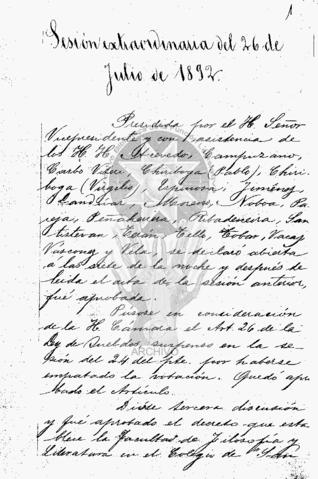 1
Sesión extraordinaria del 26 de
Julio de 1892.
Presidida por el H. Señor
Vicepresidente y con asistencia de
los H. H. Acevedo, Campuzano,
Carbo Viteri, Chiriboga (Pablo), Chiri-
boga (Virgilio), Espinosa, Jiménez,
Landívar, Morán, Noboa, Pa-
reja, Peñaherrera, Ribadeneira, San-
tistevan, Terán, Tello, Tobar, Vacas,
Vásconez y Vela, se declaró abierta
a las siete de la noche y después de
leida el acta de la sesión anterior,
fué aprobada.
Púsose en consideración
de la H. Cámara el Art. 26 de la
Ley de Sueldos, suspenso en la se-
sión del 24 del pte. por haberse
empatado la votación. Quedó apro-
bado el Artículo.
Dióse tercera discusión
y fué aprobado el decreto que esta-
blece la Facultad de Filosofía y
Literatura en el Colegio de San
ARCHIVO